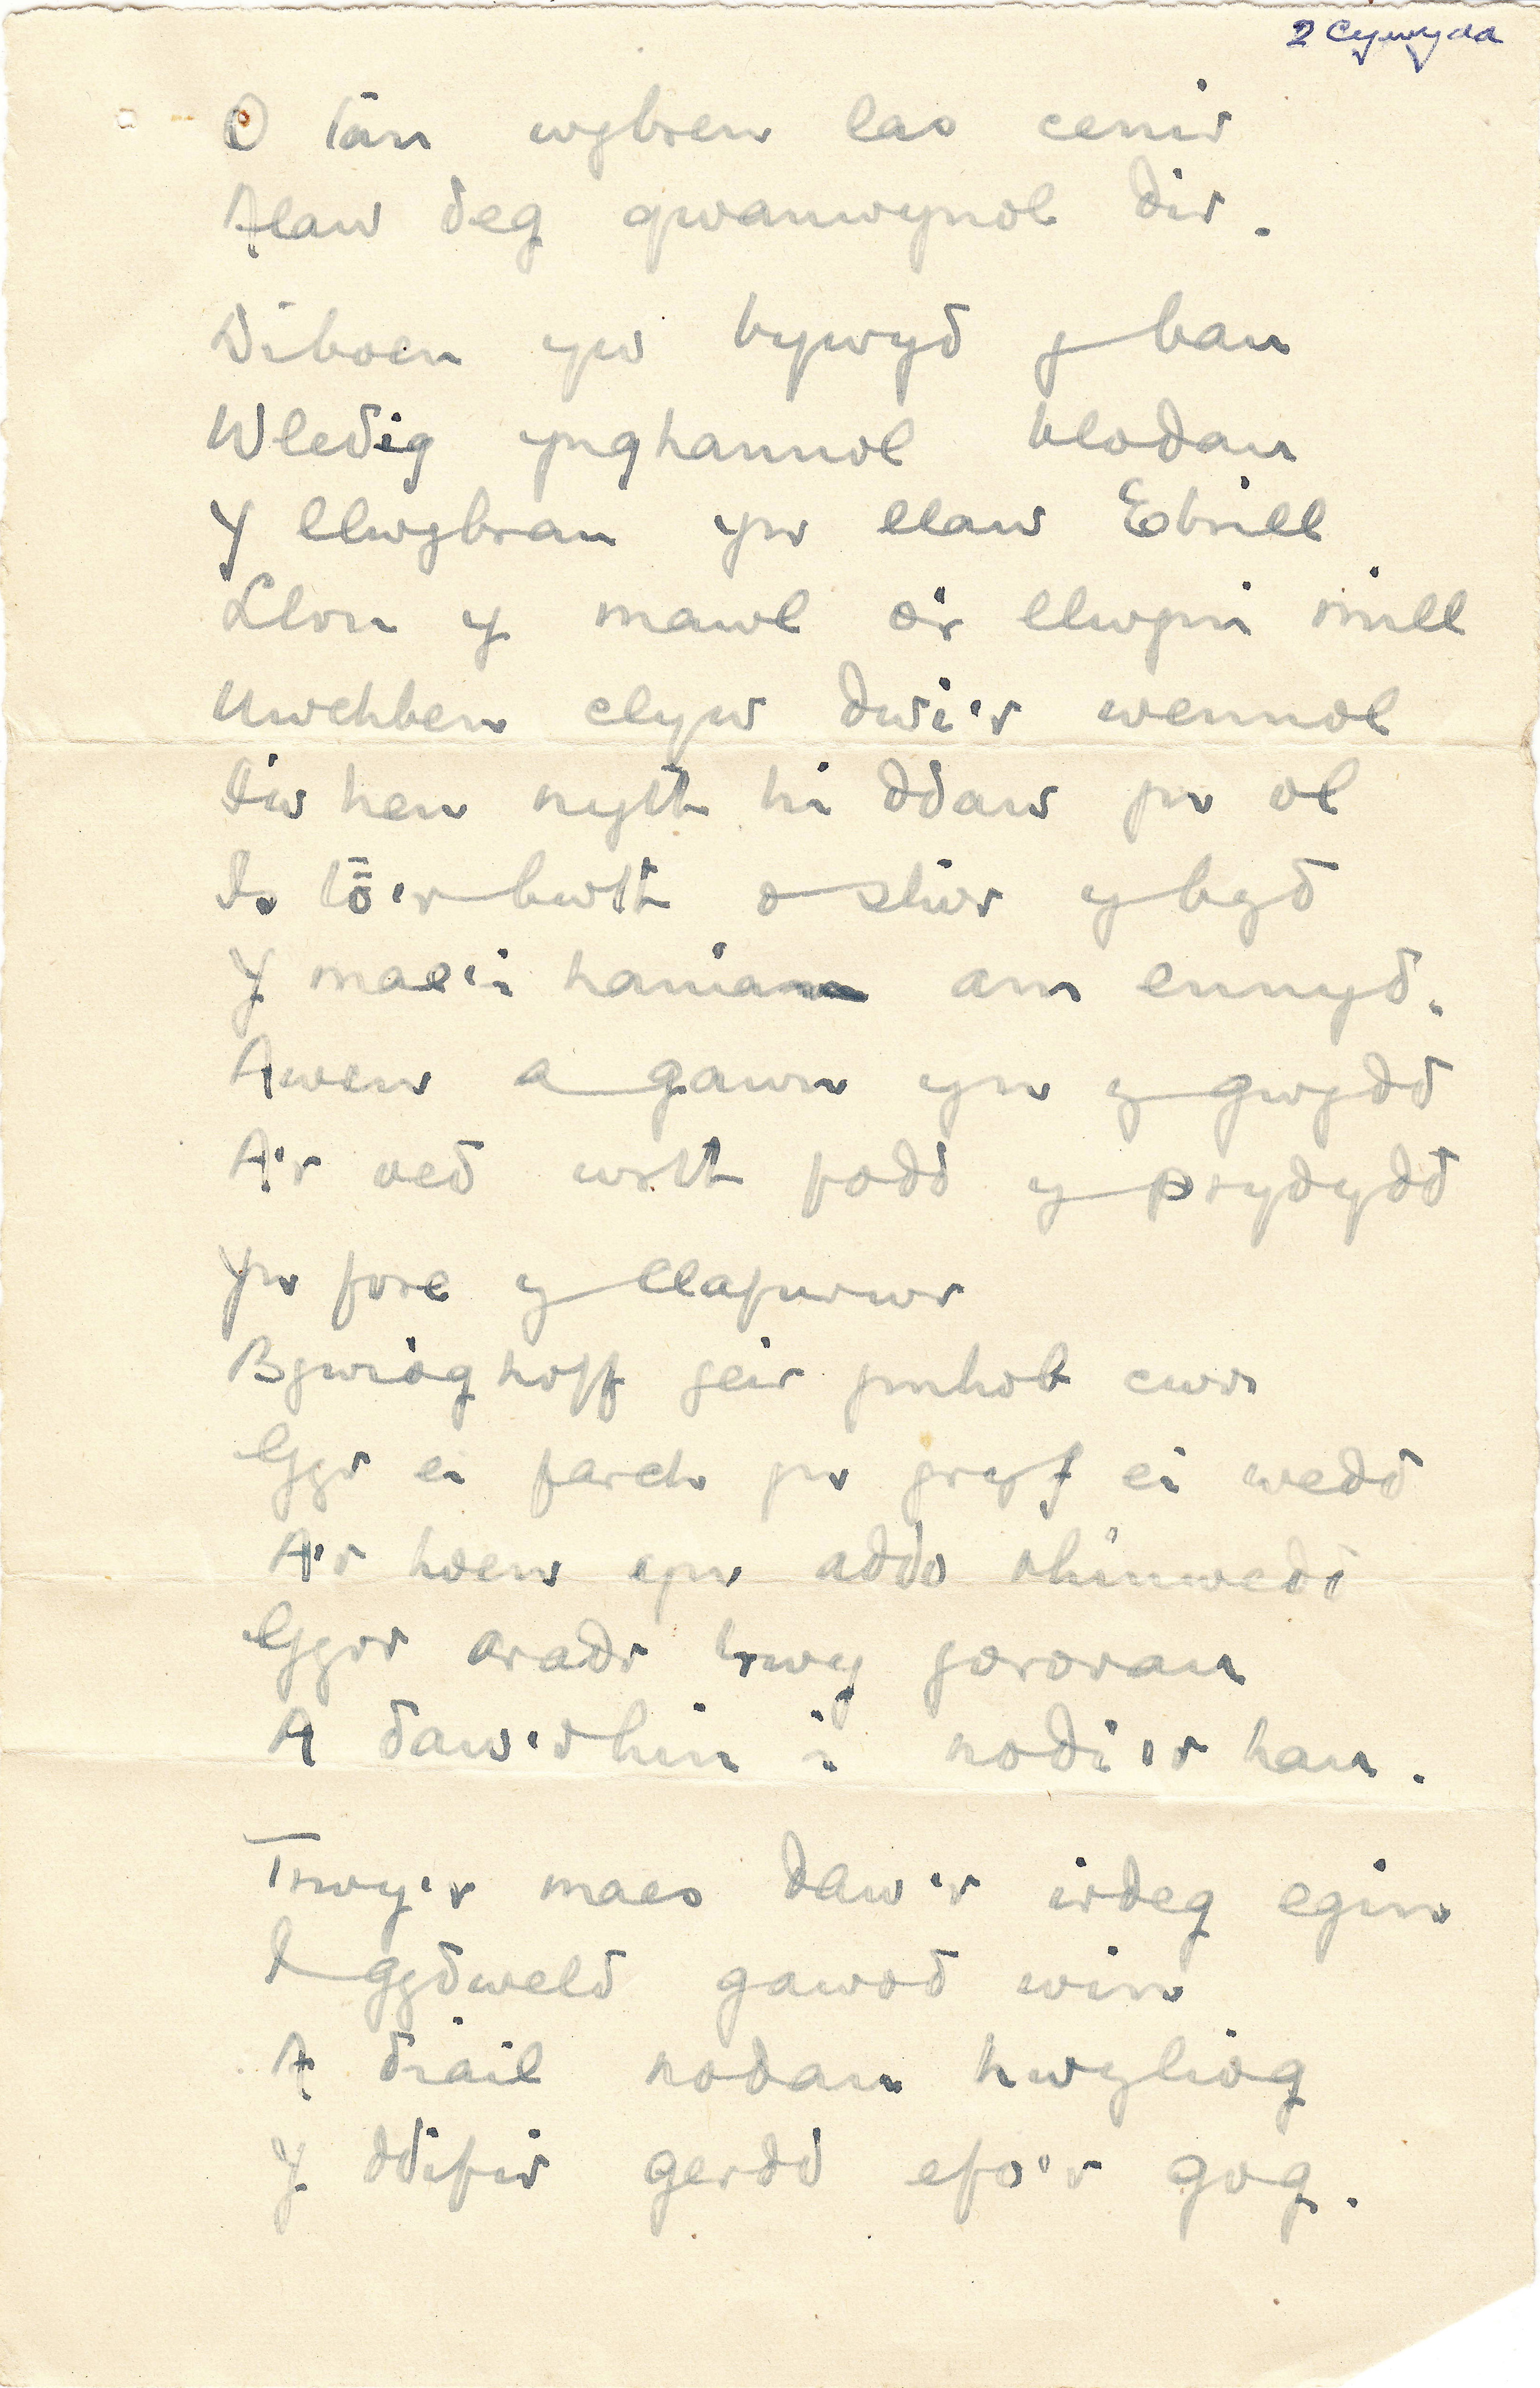 2 Cywydd
O tan wybren las cenir
Alaw deg gwanwynol dir.
Diboen yw bywyd y bau
Wledig ynghannol blodau
Y llwybrau yw llaw Ebrill
Llon y mawl o'r llwyni mill
Uwchben clyw dwi'r wennol
I'w hen nyth hi ddaw yn ol
Is to'r bwth o stwr y byd
Y mae'i hanian am ennyd.
Awen a gawn yn y gwydd
A'r oed wrth fodd y prydydd
Yn fore y llafurwr
Bywiog hoff geir ymhob cwr
Gyr ei farch yn gryf ei wedd
A'r hoen yn addo rhinwedd
Gyrr aradr trwy gororau
A daw'r hin i nodi'r hau.
Trwy'r maes daw'r irdeg egin
I gydweld gawod win
A diail nodau hwyliog
Y ddifir gerdd efo'r gog.